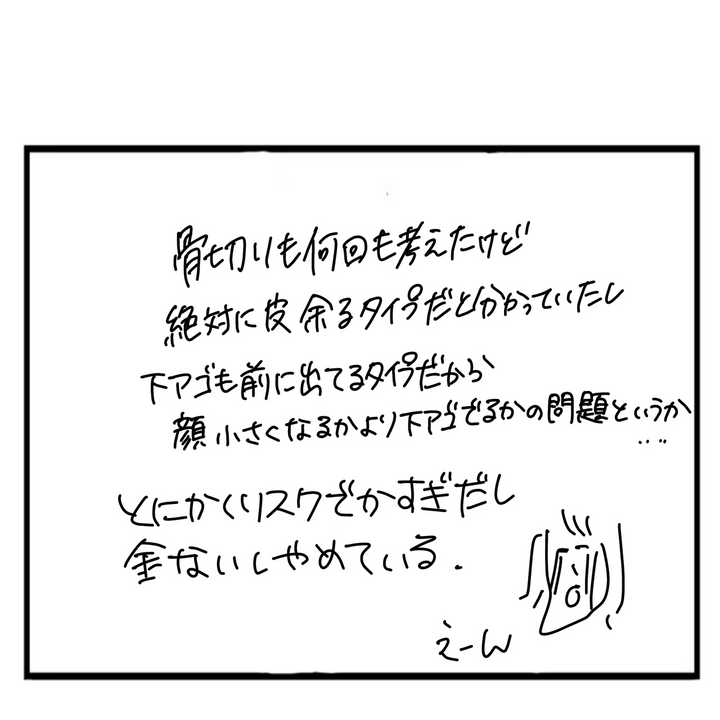 骨切りも何回も考えたけど
絶対に皮余るタイプだと分かっていたし
下アゴも前に出てるタイプだから
顔小さくなるかより下アゴでるかの問題というか
‥‥
とにかくリスクでかすぎだし
金ないしやめている.
えーん